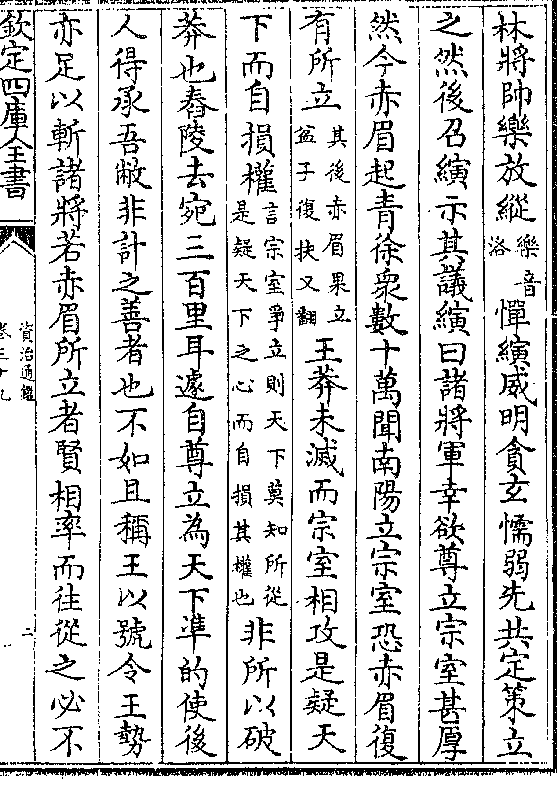 林將帥樂放縱樂音洛憚縯威明貪玄懦弱先共定策立
之然後召縯示其議縯曰諸將軍幸欲尊立宗室甚厚
然今赤眉起青徐衆數十萬聞南陽立宗室恐赤眉復
有所立其後赤眉果立盆子復扶又翻王莽未滅而宗室相攻是疑天
下而自損權言宗室爭立則天下莫知所從是疑天下之心而自損其權也非所以破
莽也舂陵去宛三百里耳遽自尊立為天下準的使後
人得承吾敝非計之善者也不如且稱王以號令王勢
亦足以斬諸將若赤眉所立者賢相率而往從之必不
欽定四庫全書
資治通鑑
卷三十九
二